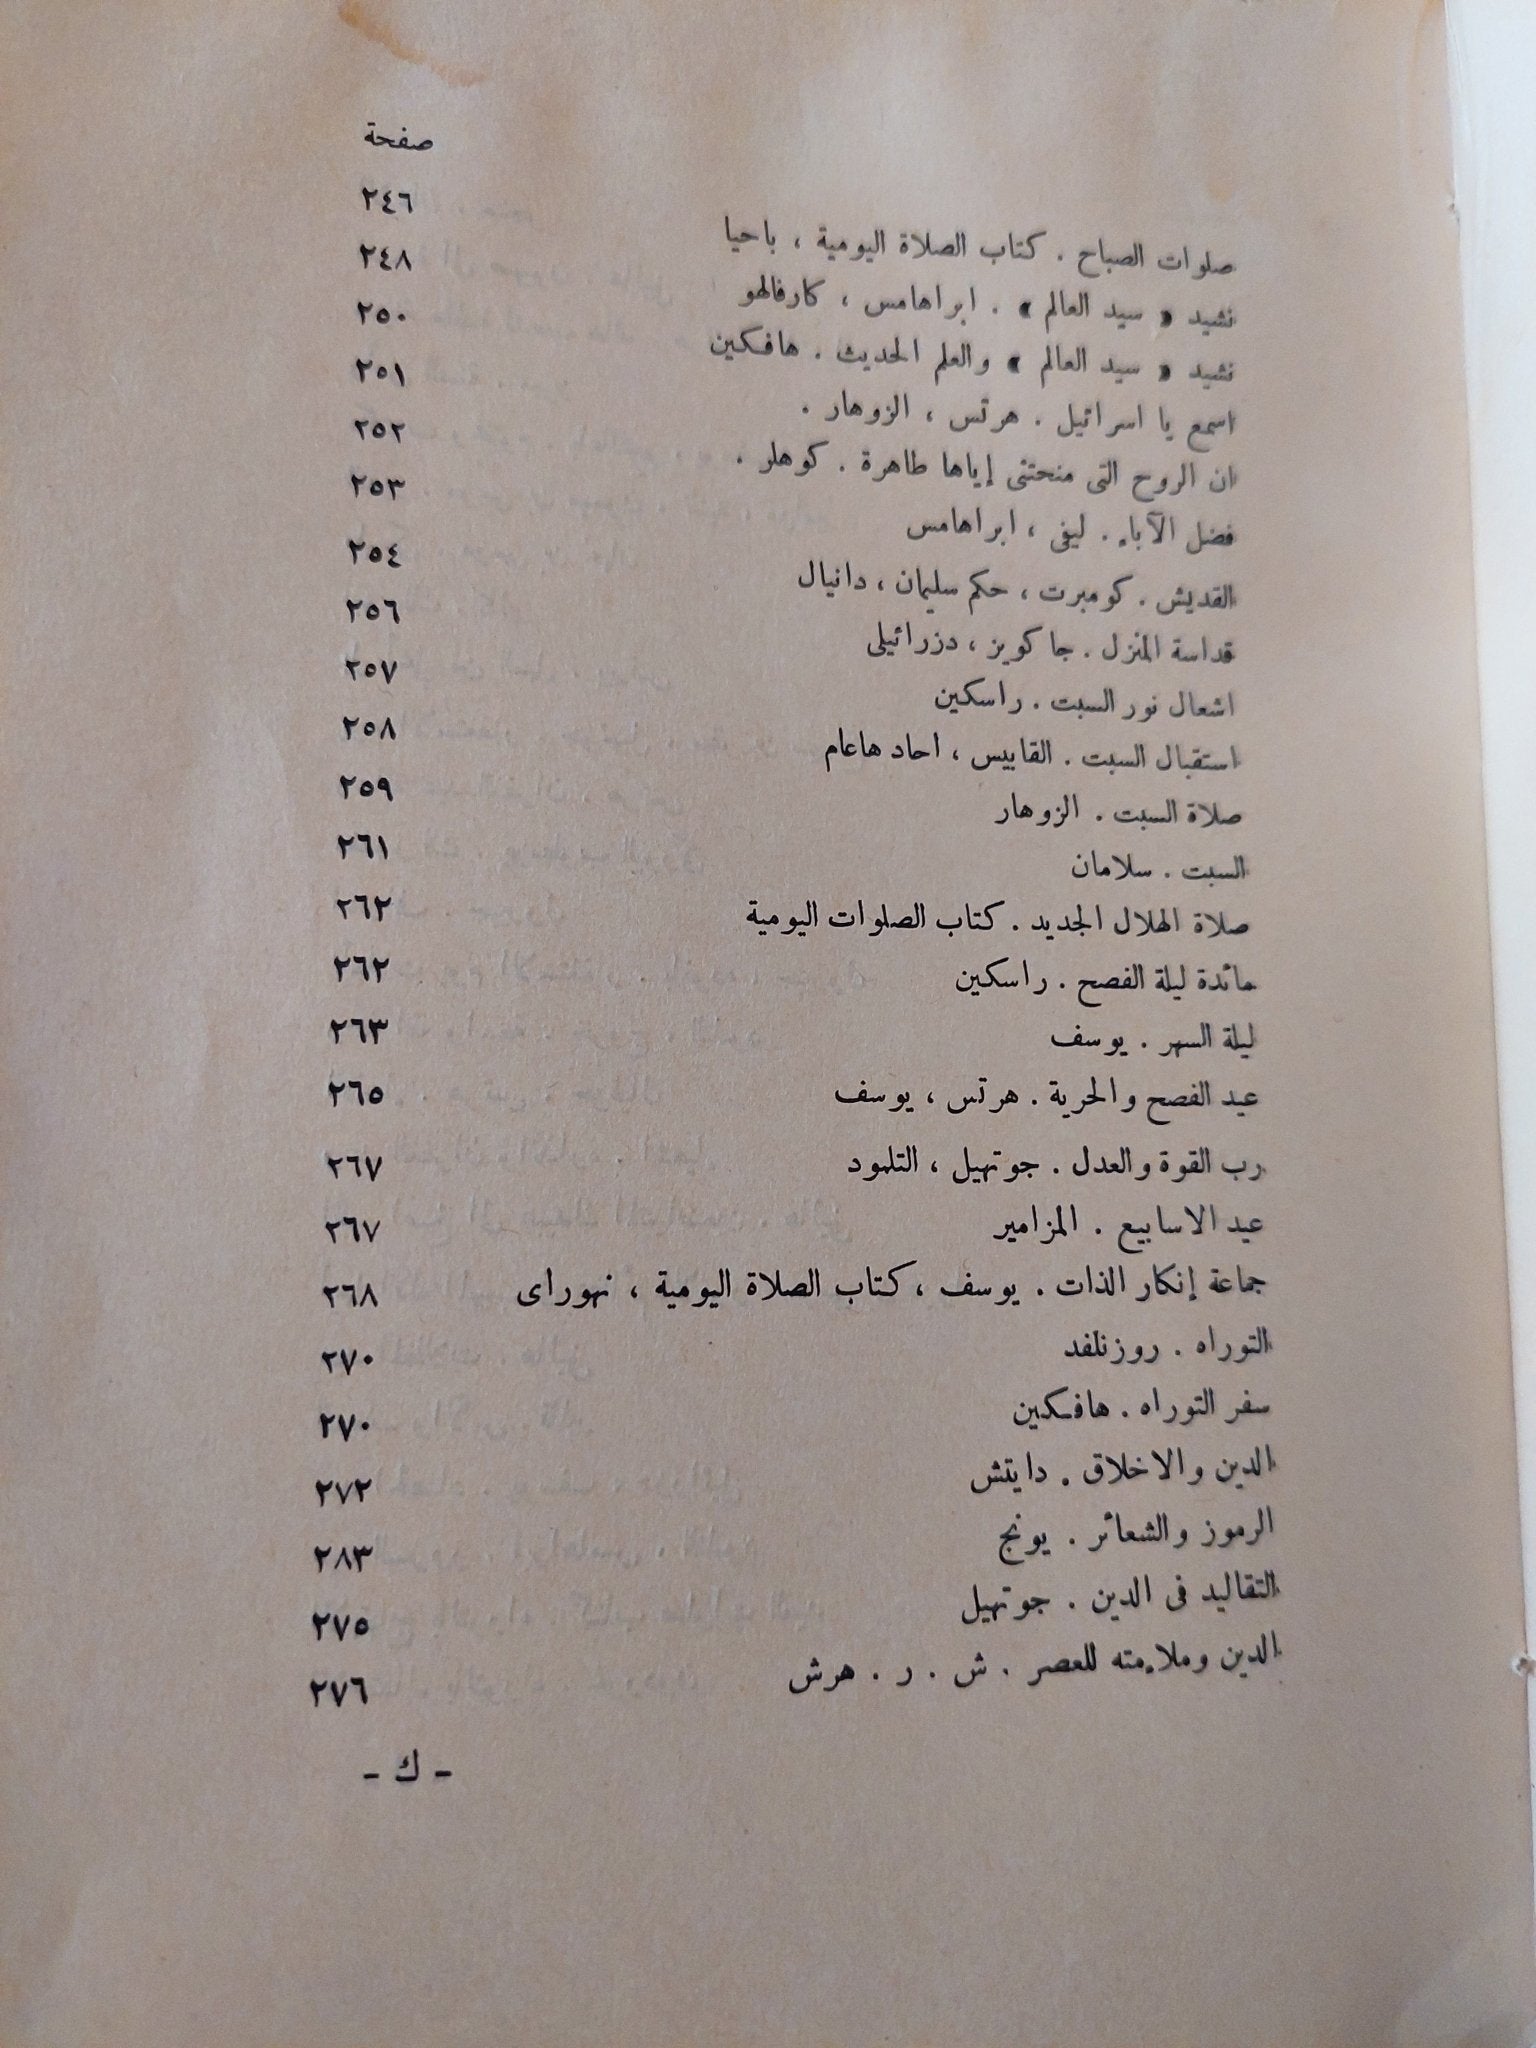 صفحة
صلوات الصباح . كتاب الصلاة اليومية ، باحيا ٢٤٦
نشيد « سيد العالم » . ابراهامس ، كارفالهو ٢٤٨
نشيد « سيد العالم » والعلم الحديث . هافكين ٢٥٠
اسمع يا اسرائيل . هرتس ، الزوهار . ٢٥١
ان الروح التى منحتنى إياها طاهرة . كوهلر . ٢٥٢
فضل الآباء . ليفى ، ابراهامس ٢٥٣
القديش . كومبرت ، حكم سليمان ، دانيال ٢٥٤
قداسة المنزل . جاكوبز ، دزرائيلى ٢٥٦
اشعال نور السبت . راسكين ٢٥٧
استقبال السبت . القابيس ، احاد هاعام ٢٥٨
صلاة السبت . الزوهار ٢٥٩
السبت . سلامان ٢٦١
صلاة الهلال الجديد . كتاب الصلوات اليومية ٢٦٢
مائدة ليلة الفصح . راسكين ٢٦٢
ليلة السهر . يوسف ٢٦٣
عيد الفصح والحرية . هرتس ، يوسف ٢٦٥
رب القوة والعدل . جوتهيل ، التلمود ٢٦٧
عيد الاسابيع . المزامير ٢٦٧
جماعة إنكار الذات . يوسف ، كتاب الصلاة اليومية ، نهوراى ٢٦٨
التوراه . روزنلفد ٢٧٠
سفر التوراه . هافكين ٢٧٠
الدين والاخلاق . دايتش ٢٧٢
الرموز والشعائر . يونج ٢٨٣
التقاليد فى الدين . جوتهيل ٢٧٥
الدين وملاءمته للعصر . ش . ر . هرش ٢٧٦
- ك -